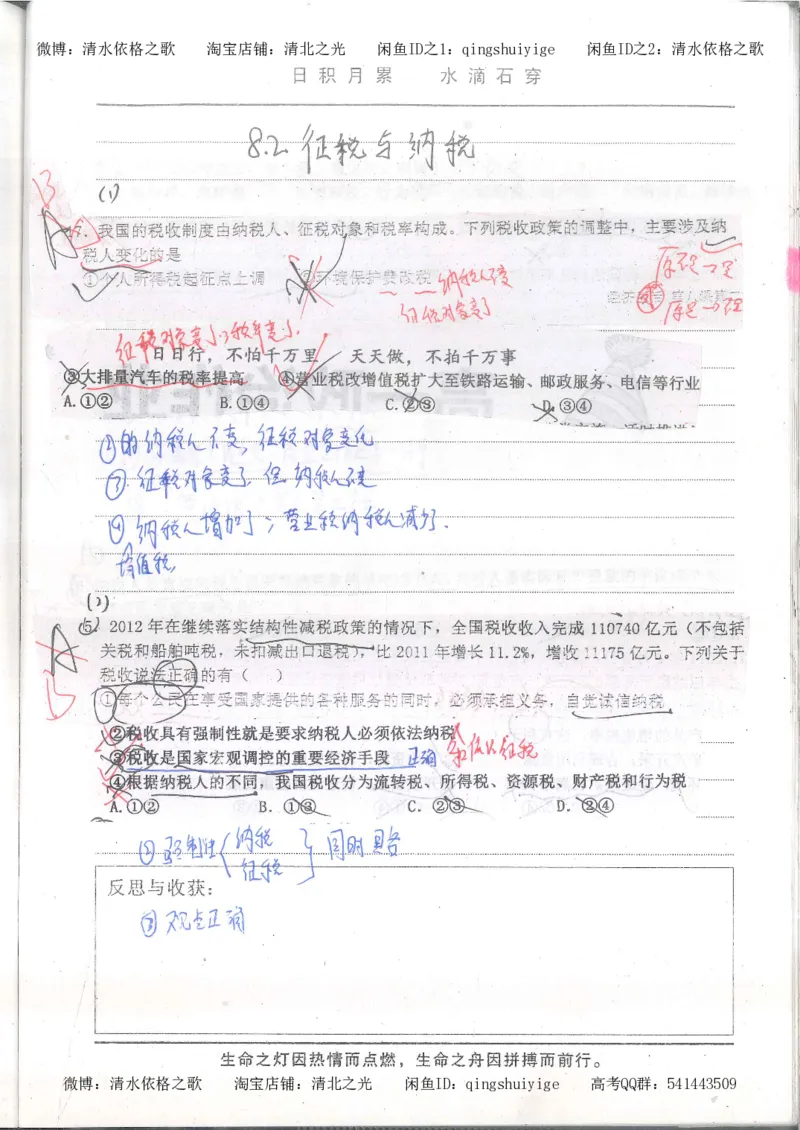 微博：清水依格之歌 淘宝店铺：清北之光 闲鱼ID之1：qingshuiyige 闲鱼ID之2：清水依格之歌
日积月累 水滴石穿
8.2 征税与纳税
B
(1)
A
7. 我国的税收制度由纳税人、征税对象和税率构成。下列税收政策的调整中，主要涉及纳
税人变化的是
①个人所得税起征点上调 ②环境保护费改税
纳税人不变
征税对象变了
征税对象变了，税率变了.
日日行，不怕千万里 天天做，不怕千万事
③大排量汽车的税率提高 ④营业税改增值税扩大至铁路运输、邮政服务、电信等行业
A.①② B.①④ C.②③ D.③④
①的纳税人不变，征税对象变化
②.征税对象变了 但纳税人不变
④纳税人增加了；营业税纳税人减少.
增值税
(2)
⑤. 2012年在继续落实结构性减税政策的情况下，全国税收收入完成110740亿元（不包括
关税和船舶吨税，未扣减出口退税），比2011年增长11.2%，增收11175亿元。下列关于
税收说法正确的有（ ）
A
B
①每个公民在享受国家提供的各种服务的同时，必须承担义务，自觉诚信纳税
②税收具有强制性就是要求纳税人必须依法纳税
③税收是国家宏观调控的重要经济手段 正确
依法征税
④根据纳税人的不同，我国税收分为流转税、所得税、资源税、财产税和行为税
A.①② B.①③ C.②③ D.②④
②强制性{纳税 征税}同时具备
反思与收获：
③观点正确
生命之灯因热情而点燃，生命之舟因拼搏而前行。
微博：清水依格之歌 淘宝店铺：清北之光 闲鱼ID：qingshuiyige 高考QQ群：541443509